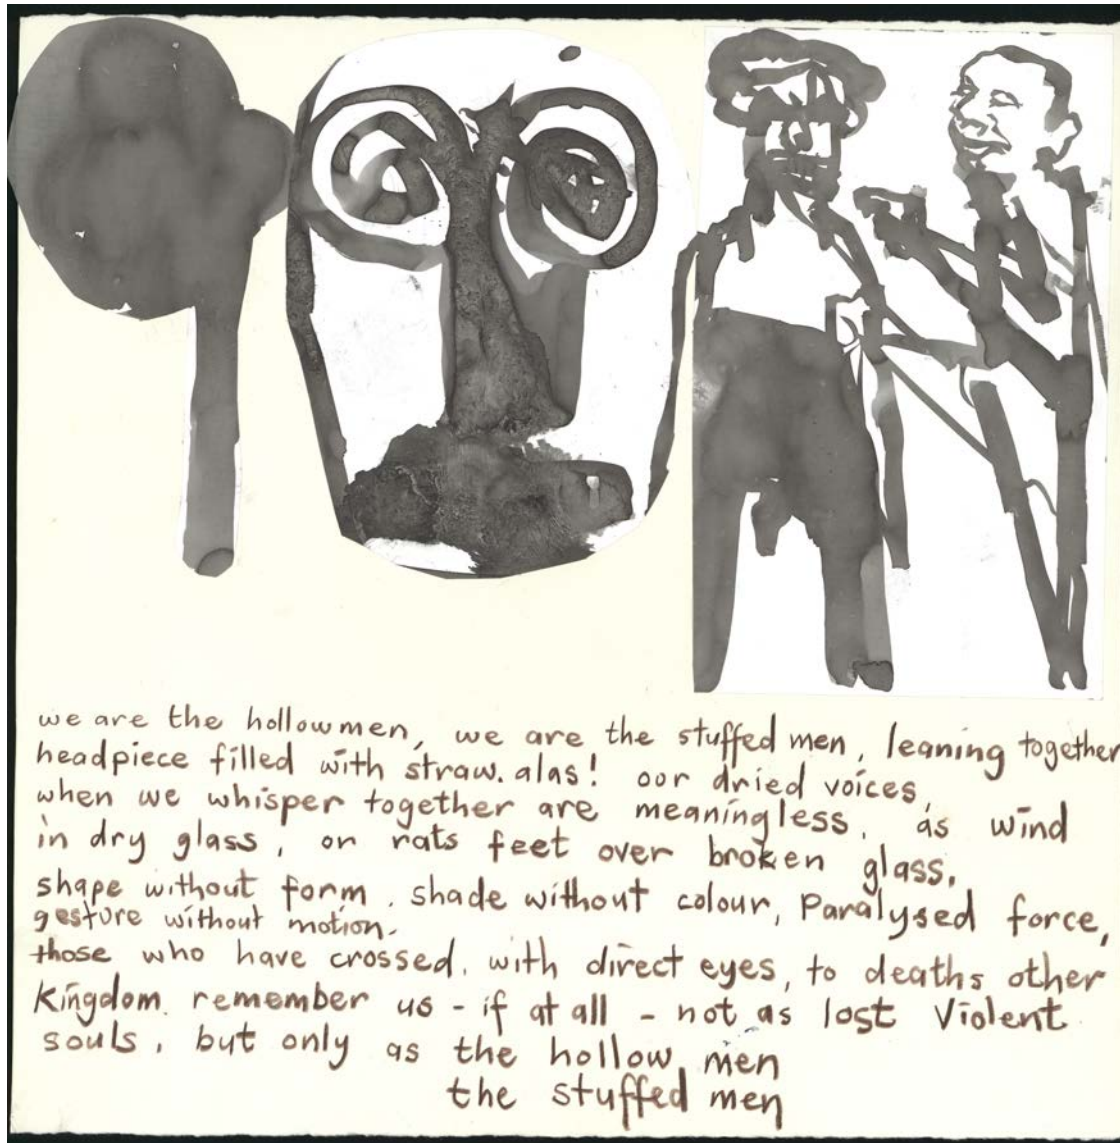 we are the hollowmen, we are the stuffed men, leaning together
headpiece filled with straw. alas! oor dried voices,
when we whisper together are meaningless, as wind
in dry glass, or rats feet over broken glass.
shape without form. shade without colour, Paralysed force,
gesture without motion.
those who have crossed. with direct eyes, to deaths other
Kingdom. remember us - if at all - not as lost Violent
souls, but only as the hollow men
the stuffed men